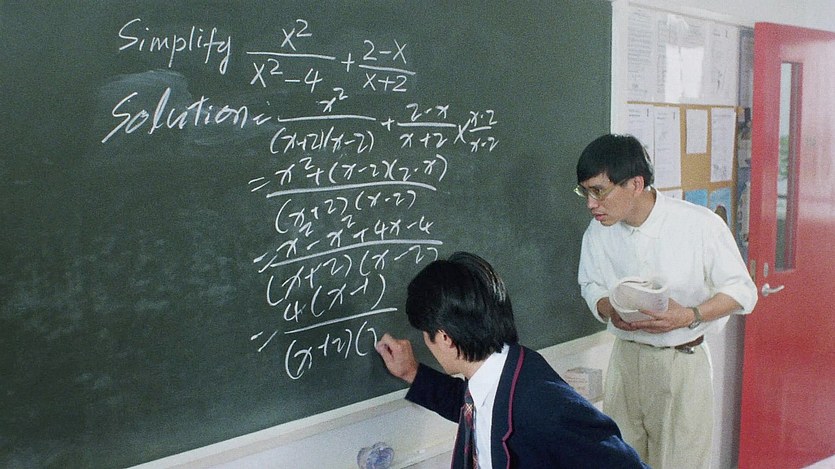 Simplify x²/(x²-4) + (2-x)/(x+2)
Solution: x²/((x+2)(x-2)) + (2-x)/(x+2) × (x-2)/(x-2)
= (x²+(x-2)(2-x))/((x+2)(x-2))
= (x²-x²+4x-4)/((x+2)(x-2))
= 4(x-1)/((x+2)(